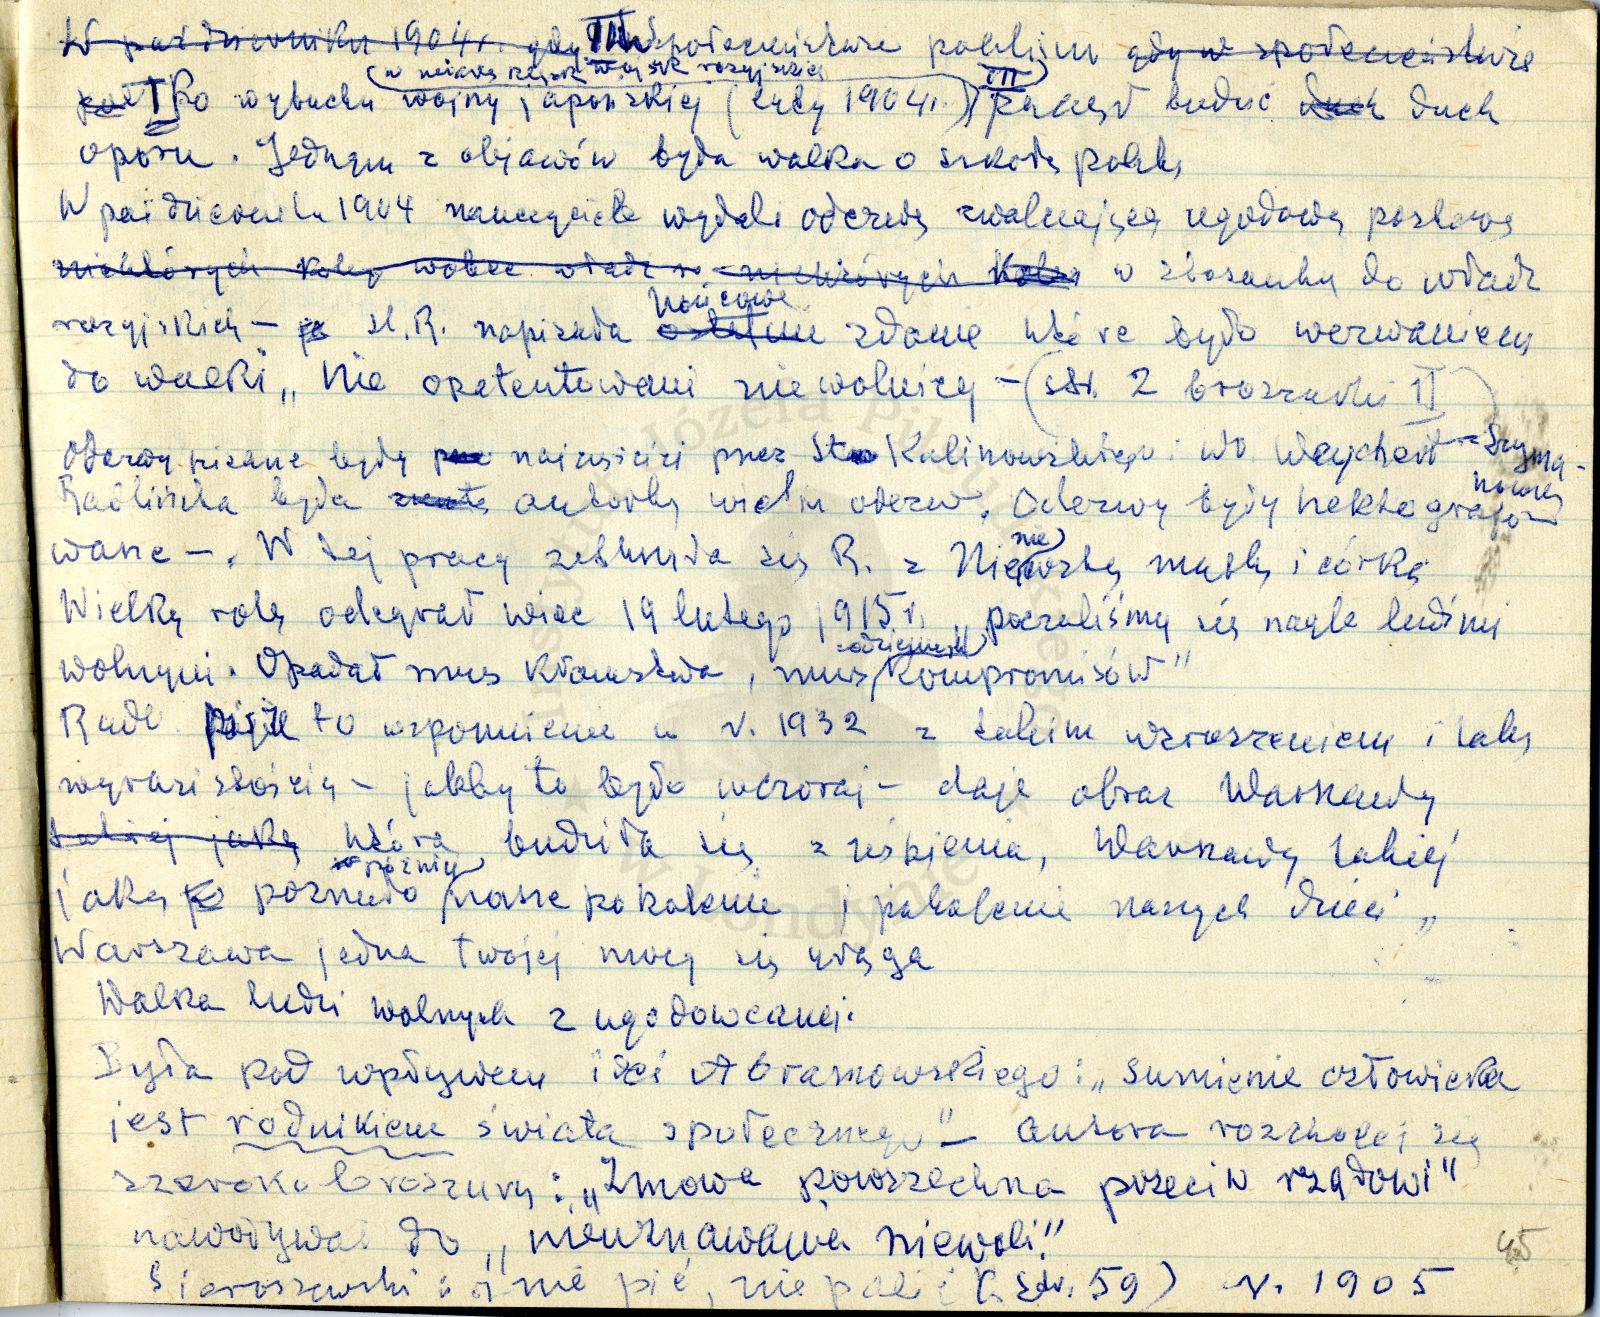 W październiku 1904 r. gdy III społeczeństwie polskim gdy w społeczeństwie
w miarę klęsk wojsk rosyjskich III
I Po wybuchu wojny japońskiej (luty 1904 r.) zaczął budzić duch duch
oporu. Jednym z objawów była walka o szkołę polską
W październiku 1904 nauczyciele wydali odezwę zwalczającą ugodową postawę
niektórych kolegów wobec władz niektórych kolegów w stosunku do władz
rosyjskich – H.R. napisała ostatnie końcowe zdanie które było wezwaniem
do walki „Nie opatentowani niewolnicy – (str. 2 broszurki II)
Odezwy pisane były najczęściej przez St. Kalinowskiego i Wł. Weychert-Szyma-
nowską
Radlińska była autorką wielu odezw. Odezwy były hektografo-
wane –. W tej pracy zetknęła się R. z matką i córką
Wielką rolę odegrał wiec 19 lutego 1915 r. „poczuliśmy się nagle ludźmi
wolnymi. Opadał mus kłamstwa, mus kompromisów”
Radl. pisze to wspomnienie w r. 1932 z takim wzruszeniem i taką
wyrazistością – jakby to było wczoraj – daje obraz Warszawy
takiej jaką która budziła się z uśpienia, Warszawy takiej
jaką poznało również nasze pokolenie i pokolenie naszych dzieci „
Warszawa jedna twojej mocy się urąga
Walka ludzi wolnych z ugodowcami.
Była pod wpływem idei Abramowskiego: „Sumienie człowieka
jest rodnikiem świata społecznego” – autora rozchodzącej się
szeroko broszury: „Zmowa powszechna przeciw rządowi”
nawoływał do „nieuznawania niewoli.”
Sieroszewski: nie pić, nie palić (str. 59) r. 1905
45
Instytut Józefa Piłsudskiego w Londynie